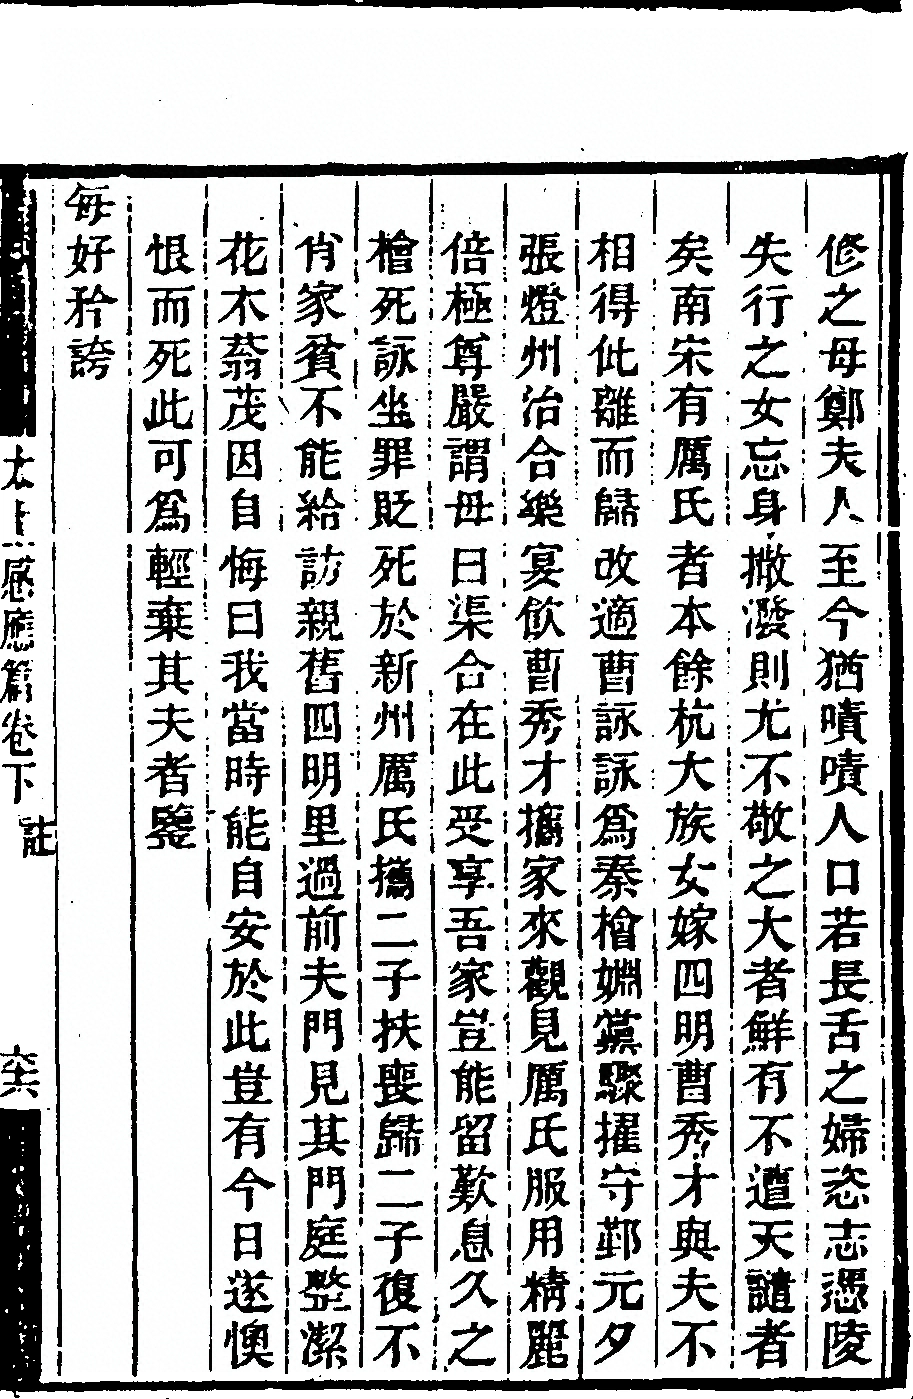 修之母鄭夫人至今猶嘖嘖人口若長舌之婦恣志憑陵
失行之女忘身撒潑則尤不敬之大者鮮有不遭天譴者
矣南宋有厲氏者本餘杭大族女嫁四明曹秀才與夫不
相得仳離而歸改適曹詠詠爲秦檜婣黨驟擢守鄞元夕
張燈州治合樂宴飲曹秀才攜家來觀見厲氏服用精麗
倍極尊嚴謂母曰渠合在此受享吾家豈能留歎息久之
檜死詠坐罪貶死於新州厲氏攜二子扶喪歸二子復不
肖家貧不能給訪親舊四明里過前夫門見其門庭整潔
花木蓊茂因自悔曰我當時能自安於此豈有今日遂懊
恨而死此可爲輕棄其夫者鑒
每好矜誇
太上感應篇卷下 註 六六